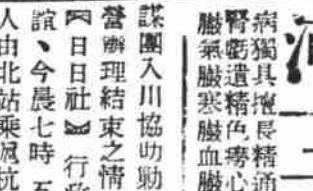 病獨具擅長精通
腎虧遺精色癆心
臟氣臟寒臟血臟
謀團入川協助勦
營辦理結束之情
【日日社】行政
誼、今晨七時五
人由北站乘滬杭